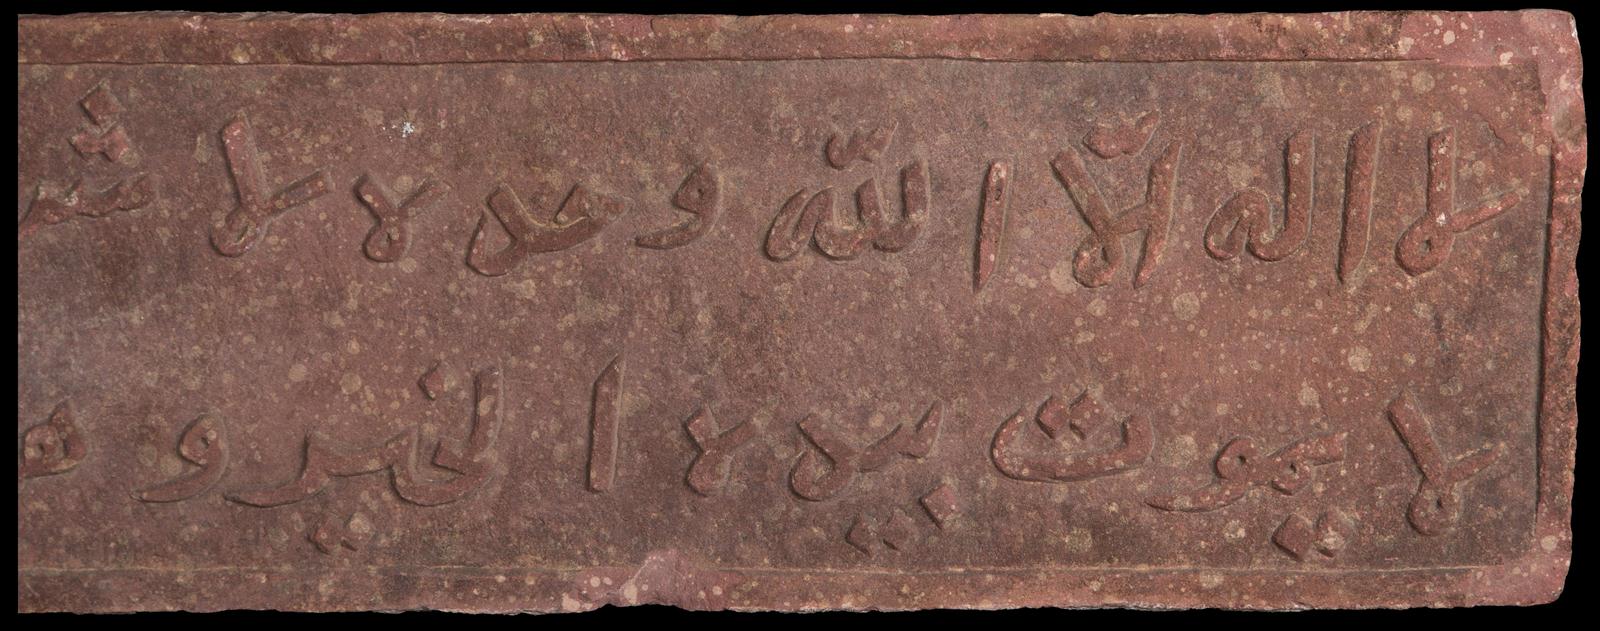 لا اله الّا اللّه وحده لا
لا يموت بيده الخير و